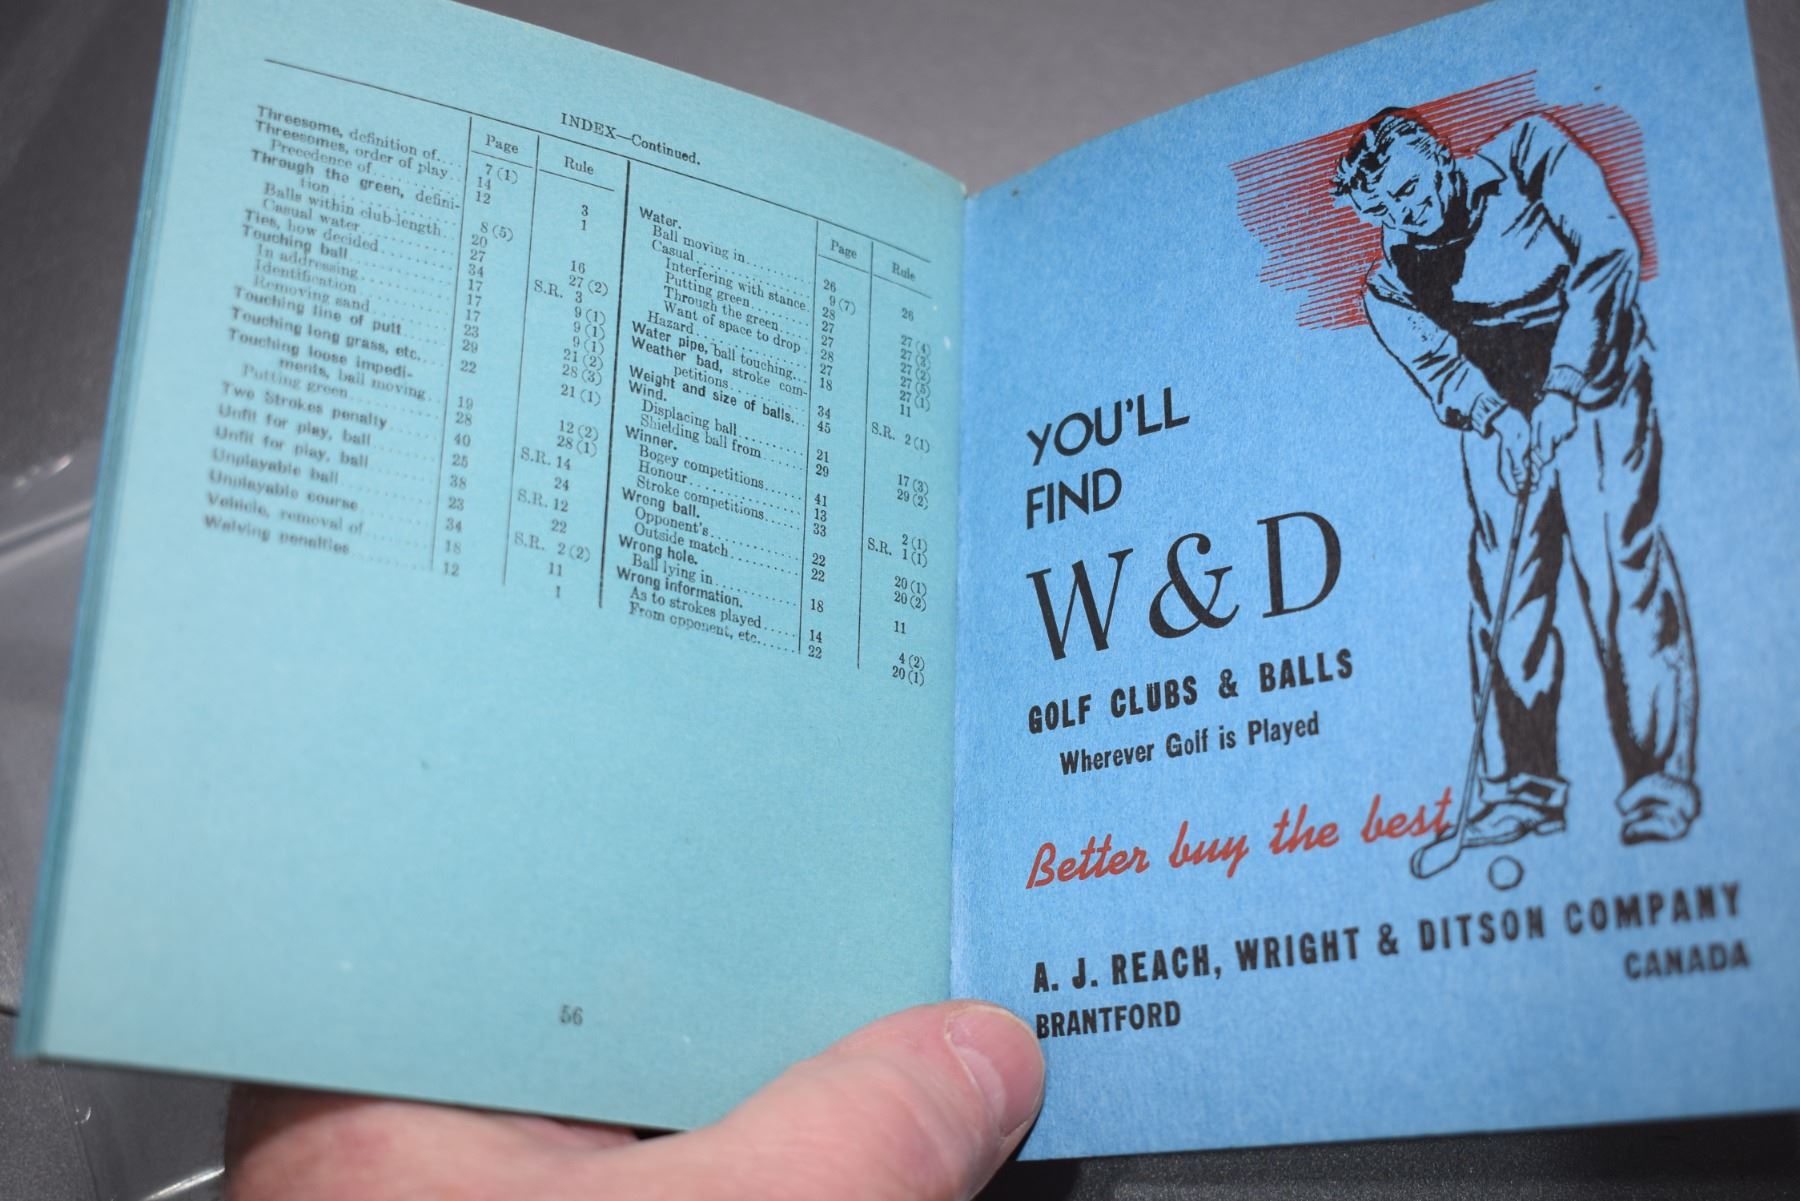 INDEX—Continued.
Page Rule
Threesome, definition of.... 7 (1)
Threesomes, order of play.. 14 3
Precedence of........... 12 1
Through the green, defini-
tion.................. 8 (5)
Balls within club-length.. 20 16
Casual water............ 27 27 (2)
Ties, how decided......... 34 S.R. 3
Touching ball
In addressing........... 17 9 (1)
Identification........... 17 9 (1)
Removing sand......... 17 9 (1)
Touching line of putt...... 23 21 (2)
Touching long grass, etc... 29 28 (3)
Touching loose impedi- 22 21 (1)
ments, ball moving. 19 12 (2)
Putting green........... 28 28 (1)
Two Strokes penalty....... 40 S.R. 14
Unfit for play, ball........ 25 24
Unfit for play, ball........ 38 S.R. 12
Unplayable ball........... 23 22
Unplayable course......... 34 S.R. 2 (2)
Vehicle, removal of........ 18 11
Waiving penalties.......... 12 1
Page Rule
Water.
Ball moving in.......... 26 26
Casual................ 9 (7)
Interfering with stance 28 27 (4)
Putting green........ 27 27 (3)
Through the green.... 27 27 (2)
Want of space to drop 28 27 (5)
Hazard................ 27 27 (1)
Water pipe, ball touching... 18 11
Weather bad, stroke com-
petitions............ 34 S.R. 2 (1)
Weight and size of balls... 45
Wind.
Displacing ball.......... 21 17 (3)
Shielding ball from...... 29 29 (2)
Winner.
Bogey competitions...... 41
Honour................ 13 2 (1)
Stroke competitions..... 33 S.R. 1 (1)
Wrong ball.
Opponent's............. 22 20 (1)
Outside match.......... 22 20 (2)
Wrong hole.
Ball lying in............ 18 11
Wrong information.
As to strokes played..... 14 4 (2)
From opponent, etc...... 22 20 (1)
56
YOU'LL
FIND
W & D
GOLF CLUBS & BALLS
Wherever Golf is Played
Better buy the best
A. J. REACH, WRIGHT & DITSON COMPANY
BRANTFORD CANADA